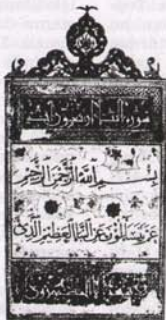 سورة النبا اربعون اية
بسم الله الرحمن الرحيم
عم يتساءلون عن النبإ العظيم الذي